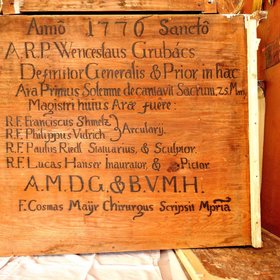 Anno 1776 Sancto
A.R.P. Wenceslaus Grubács
Definitor Generalis & Prior in hac
Ara Primus Solemne decantavit Sacrum, 
Magistri huius Aræ fuere:
R.F. Franciscus Shmetz
R.F. Philippus Vidrich } Arcularÿ.
R.F. Paulus Riedl Statuarius, & Sculptor.
R.F. Lucas Hanser Inaurator, & Pictor
A.M.D.G. & B.V.M.H.
F. Cosmas Maÿr Chirurgus Scripsit